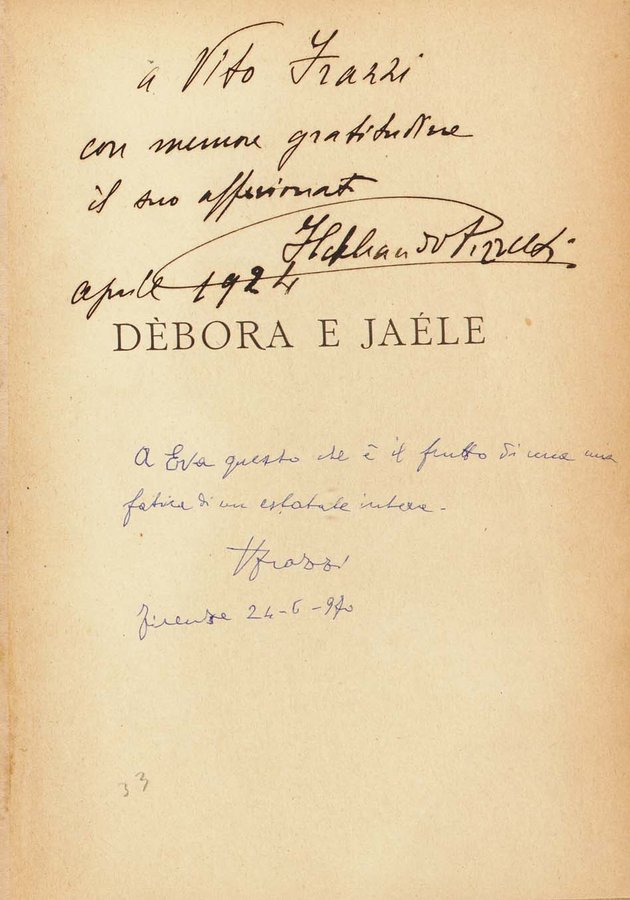 a Vito Frazzi
con memore gratitudine
il suo affezionato
Ildebrando Pizzetti
aprile 1924
DÈBORA E JAÉLE
A Eva questo che è il frutto di una mia
fatica di un estatate intera.
VFrazzi
Firenze 24-6-970
33